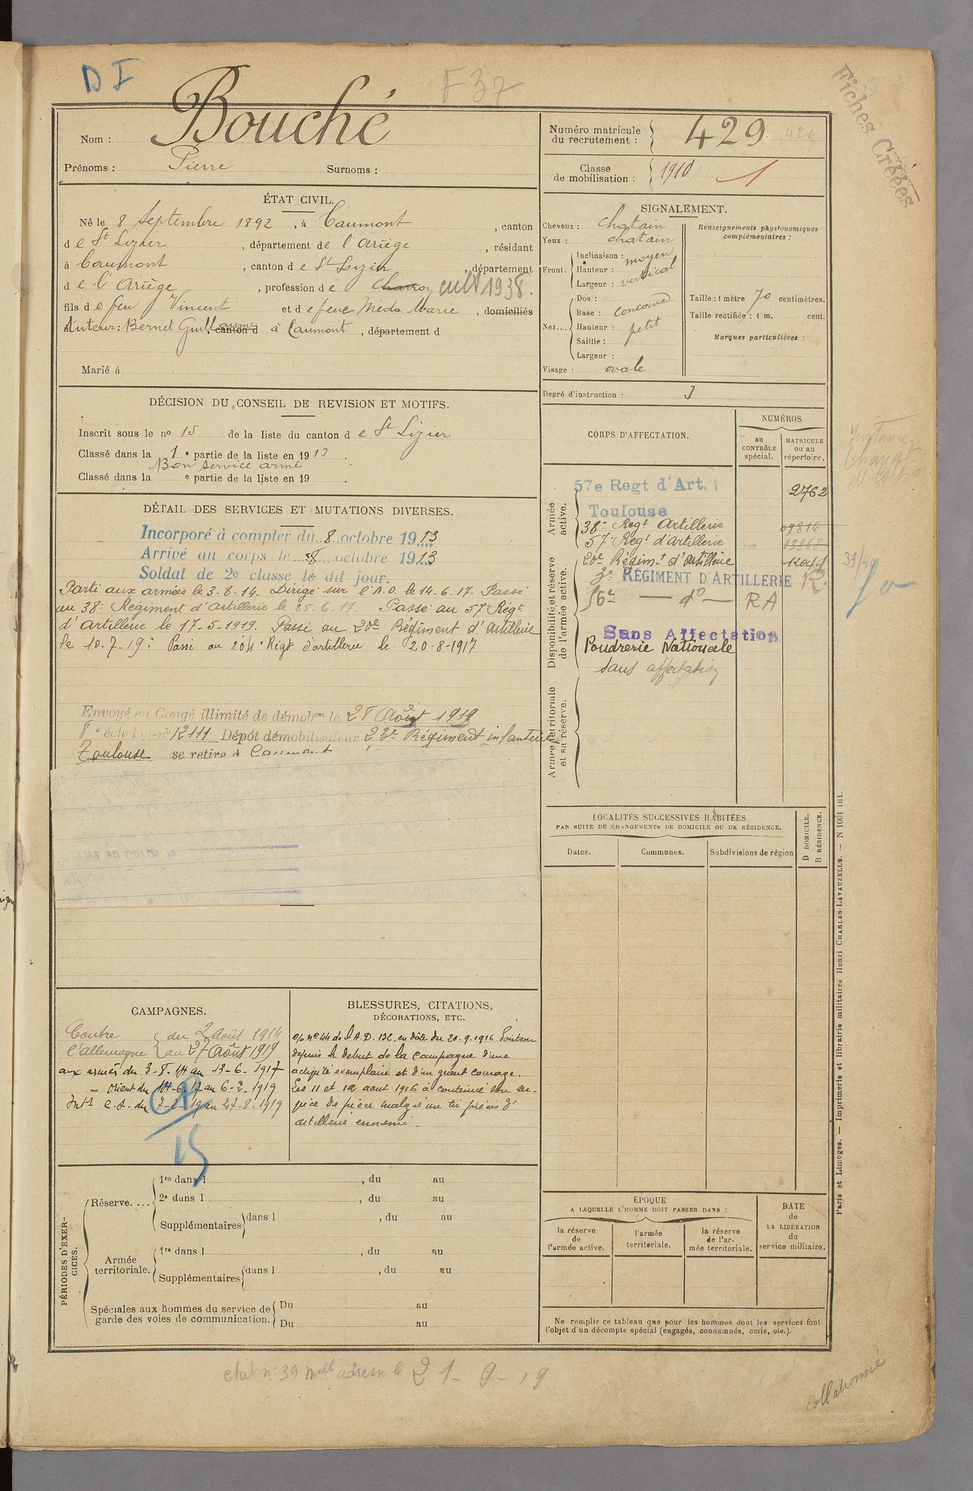 D I
F 37
Fiches Créées
Nom : Bouché
Prénoms : Pierre Surnoms :
Numéro matricule du recrutement : 429
Classe de mobilisation : 1910 1
ÉTAT CIVIL.
Né le 8 Septembre 1892, à Caumont, canton
de St Lizier, département de l'Ariège, résidant
à Caumont, canton de St Lizier, département
de l'Ariège, profession de cult 1938.
fils de feu Vincent et de feue Méda Marie, domiciliés
Tuteur : Bernet Guill canton d à Caumont, département d
Marié à
SIGNALEMENT.
Cheveux : chatain
Yeux : chatain
Front. Inclinaison : moyen
Hauteur : vertical
Largeur :
Nez... Dos :
Base : concave
Hauteur : petit
Saillie :
Largeur :
Visage : ovale
Renseignements physionomiques complémentaires :
Taille : 1 mètre 70 centimètres.
Taille rectifiée : 1 m. cent.
Marques particulières :
Degré d'instruction : 3
DÉCISION DU CONSEIL DE REVISION ET MOTIFS.
Inscrit sous le no 15 de la liste du canton de St Lizier
Classé dans la 1e partie de la liste en 1913.
Bon service armé
Classé dans la e partie de la liste en 19 .
CORPS D'AFFECTATION.
NUMÉROS
au CONTRÔLE spécial.
MATRICULE ou au répertoire.
Armée active.
57e Regt d'Art. 2762
Toulouse
38e Regt Artillerie 09816
57e Regt d'artillerie
Disponibilité et réserve de l'armée active.
20e Régimt d'artillerie
3e RÉGIMENT D'ARTILLERIE R
56e — do — RA
Sans Affectation
Poudrerie Nationale
sans affectation
Armée territoriale et sa réserve.
DÉTAIL DES SERVICES ET MUTATIONS DIVERSES.
Incorporé à compter du 8 octobre 1913
Arrivé au corps le 8 octobre 1913
Soldat de 2e classe le dit jour.
Parti aux armées le 3-8-14. Dirigé sur l'A.O. le 14-6-17. Passé
au 38e Régiment d'artillerie le 25-6-17. Passé au 57e Régt
d'Artillerie le 17-5-1919. Passé au 20e Régiment d'Artillerie
le 10-7-19 : Passé au 204e Régt d'artillerie le 20-8-1917
Envoyé en Congé illimité de démobon le 28 Août 1919
8e échelon no R2111 Dépôt démobilisateur 23e Régiment infanterie
Toulouse se retire à Caumont
LOCALITÉS SUCCESSIVES HABITÉES
PAR SUITE DE CHANGEMENTS DE DOMICILE OU DE RÉSIDENCE.
Dates. Communes. Subdivisions de région
D DOMICILE. R RÉSIDENCE.
CAMPAGNES.
Contre l'allemagne du 2 Août 1914
au 27 Août 1919
aux armées du 3-8-14 au 13-6-1917
– Orient du 14-6-17 au 6-2-1919
Intr C.S. du 7-2-19 au 27-8-1919
15
BLESSURES, CITATIONS, DÉCORATIONS, ETC.
o/ no 44 de l'A.D. 132 en date du 20.9.1916
depuis le début de la Campagne d'une
activité exemplaire et d'un grand courage.
Les 11 et 12 aout 1916 a continué son ser-
vice de pièce malgré un tir précis d'
artillerie ennemie.
PÉRIODES D'EXERCICES.
Réserve.... 1re dans l , du au
2e dans l , du au
Supplémentaires dans l , du au
Armée territoriale. 1re dans l , du au
Supplémentaires dans l , du au
Spéciales aux hommes du service de garde des voies de communication. Du au
Du au
ÉPOQUE
A LAQUELLE L'HOMME DOIT PASSER DANS :
la réserve de l'armée active.
l'armée territoriale.
la réserve de l'armée territoriale.
DATE de LA LIBÉRATION du service militaire.
Ne remplir ce tableau que pour les hommes dont les services font
l'objet d'un décompte spécial (engagés, condamnés, omis, etc.).
Paris et Limoges. — Imprimerie et librairie militaires Henri CHARLES-LAVAUZELLE. — N 1001 int.
etat no 39 adresse le 21-9-19
collationné